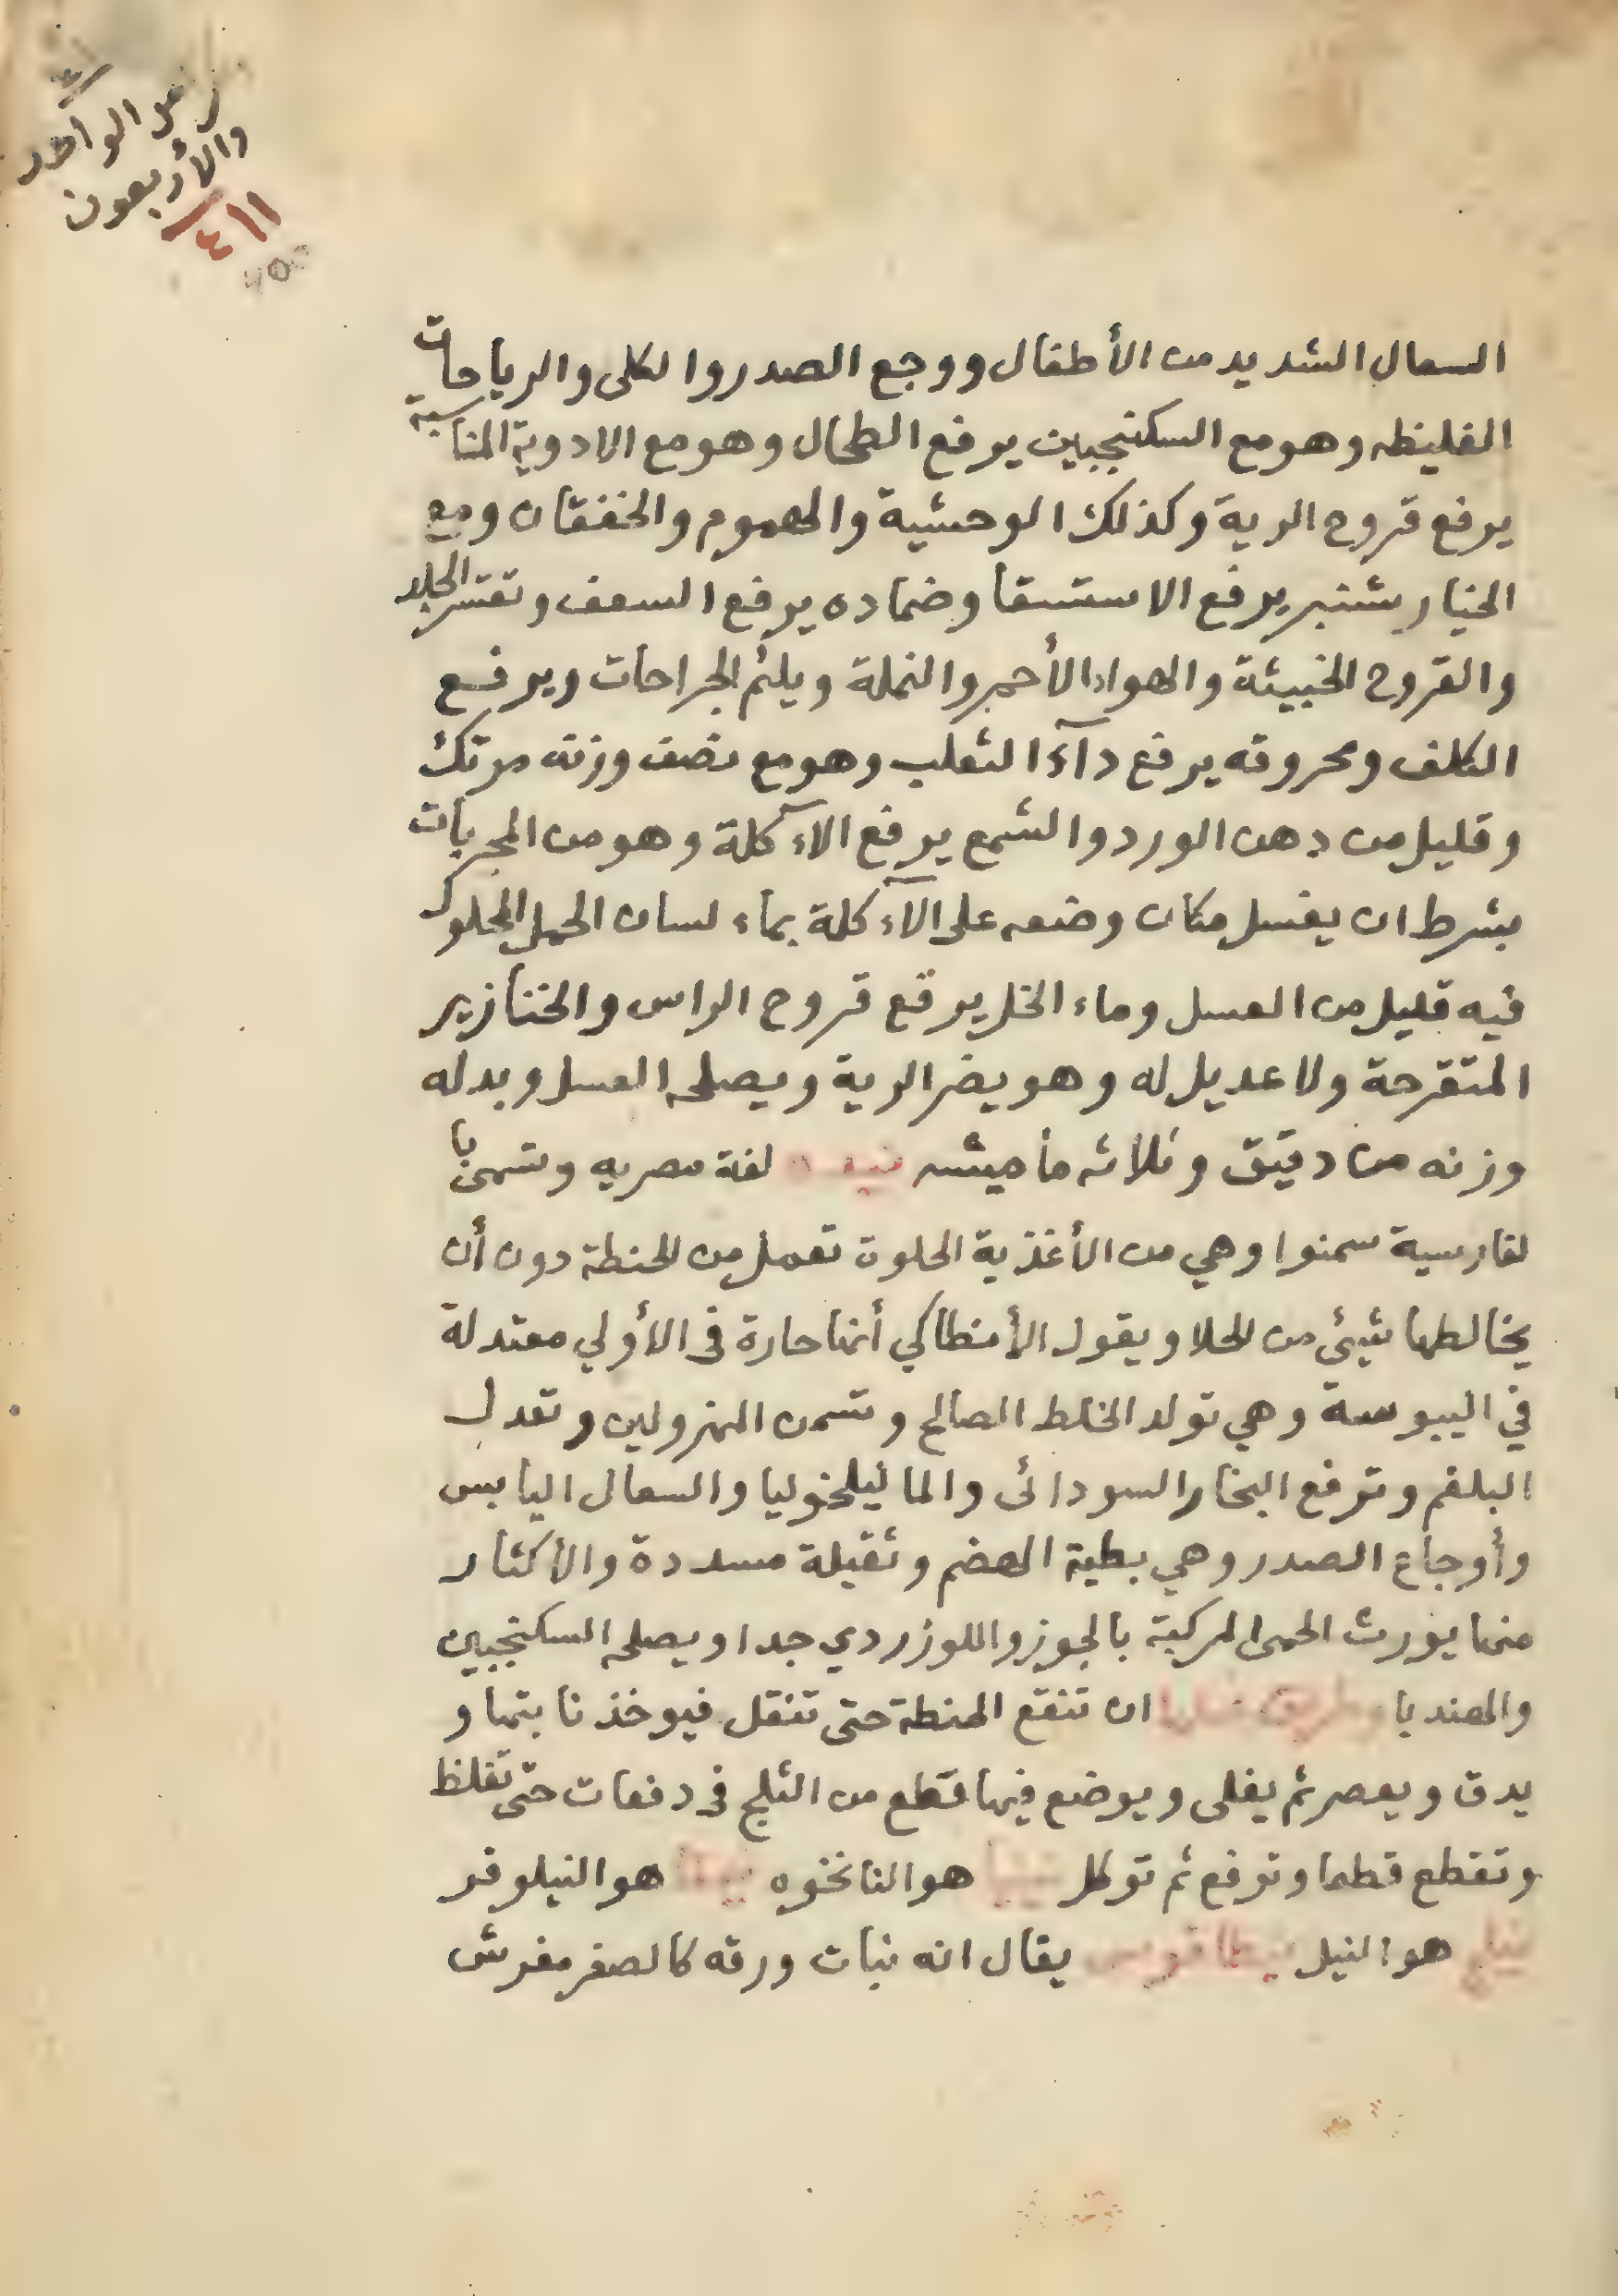 الواحد
والأربعون
السعال الشديد من الأطفال ووجع الصدر والكلى والرياحات
الغليظه وهو مع السكنجبين يرفع الطحال وهو مع الادوية المناسبة
يرفع قروح الرية وكذلك الوحشية والهموم والخفقان ومع
الخيار شنبر يرفع الاستسقا وضماده يرفع السعف وتقشر الجلد
والقروح الخبيثة والهواء الأحمر والنملة ويلئم الجراحات ويرفع
الكلف ومحروقه يرفع دآء الثعلب وهو مع نصف وزنه مرتك
وقليل من دهن الورد والشمع يرفع الآكلة وهو من المجربات
بشرط ان يغسل مكان وضعه على الآكلة بماء لسان الحمل المحلول
فيه قليل من العسل وماء الخل يرفع قروح الراس والخنازير
المتقرحة ولا عديل له وهو يضر الرية ويصلحه العسل وبدله
وزنه من دقيق وثلاثه ماميشه لغة مصريه وتسمى با
لفارسية سمنوا وهي من الأغذية الحلوة تعمل من الحنطة دون أن
يخالطها شيئ من الحلا ويقول الأنطاكي أنها حارة في الأولي معتدلة
في اليبوسة وهي تولد الخلط الصالح وتسمن المهزولين وتعدل
البلغم وترفع البخار السودائى والماليخوليا والسعال اليابس
وأوجاع الصدر وهي بطية الهضم وثقيلة مسددة والاكثار
منها يورث الحمى المركبة بالجوز واللوز ردي جدا ويصلحه السكنجبين
والهندبا ان تنقع الحنطة حتى تنقل فيوخذ نابتها و
يدق ويعصر ثم يغلى ويوضع فيها قطع من الثلج في دفعات حتى تغلظ
وتقطع قطعا وترفع ثم توكل هو النانخوه هو النيلوفر
نيلج هو النيل يقال انه نبات ورقه كالصغر مفرش